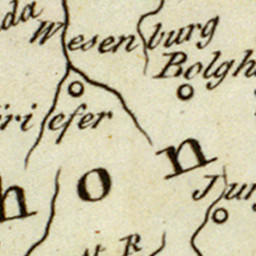 da
Wesenburg
Bolgh
iriſefer
hon
Jur
R